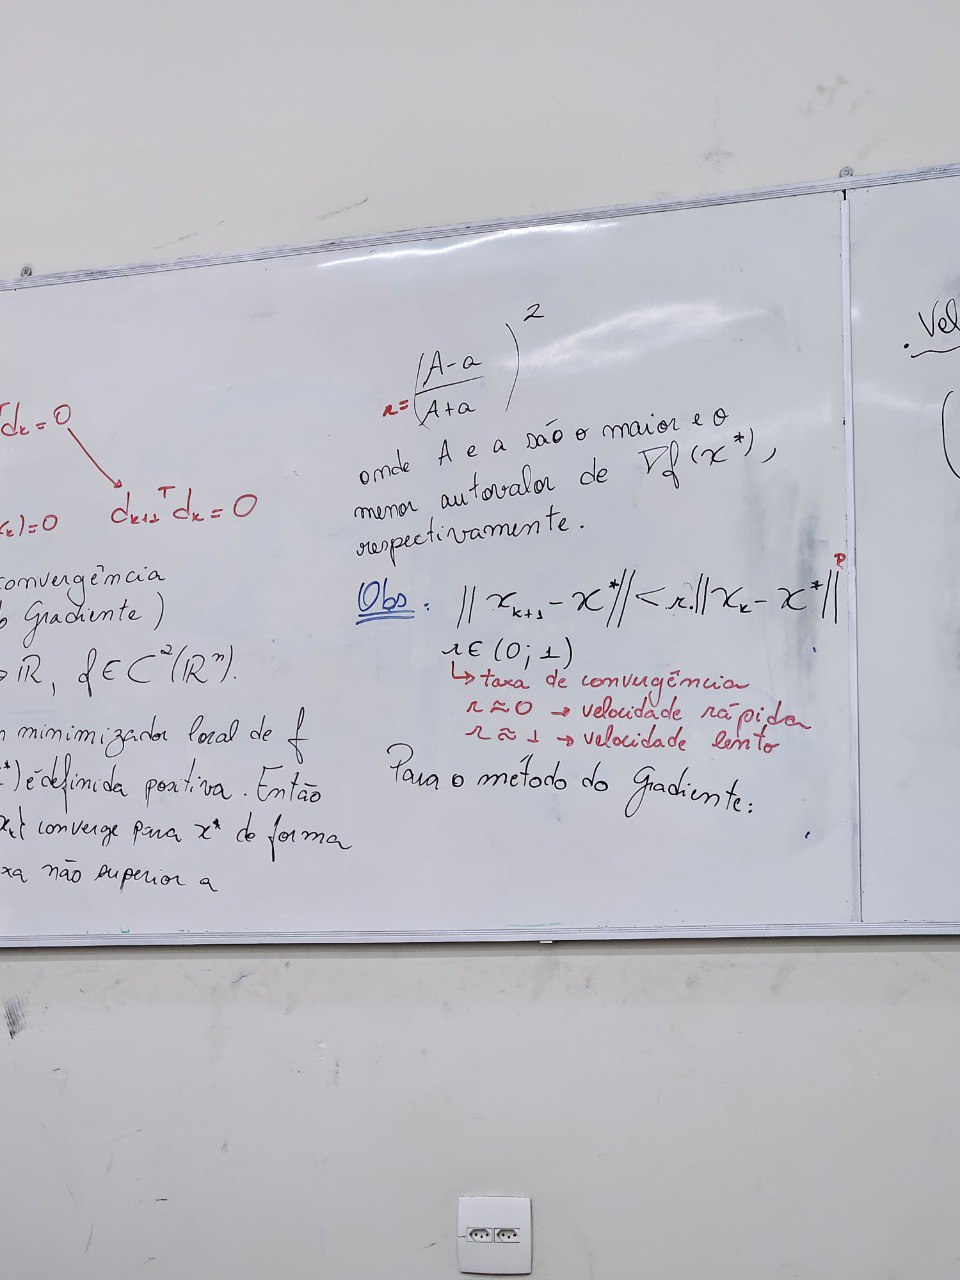 ᵀdₖ = 0
dₖ₊₁ᵀ dₖ = 0
xₖ) = 0
convergência
Gradiente)
→ ℝ, f ∈ C²(ℝⁿ).
minimizador local de f
*) é definida positiva. Então
xₖ} converge para x* de forma
xa não superior a
r = ((A-a)/(A+a))²
onde A e a são o maior e o
menor autovalor de ∇f(x*),
respectivamente.
Obs: || xₖ₊₁ - x* || < r.|| xₖ - x* ||ᵖ
r ∈ (0; 1)
↳ taxa de convergência
r ≈ 0 → velocidade rápida
r ≈ 1 → velocidade lento
Para o método do Gradiente:
. Vel
(